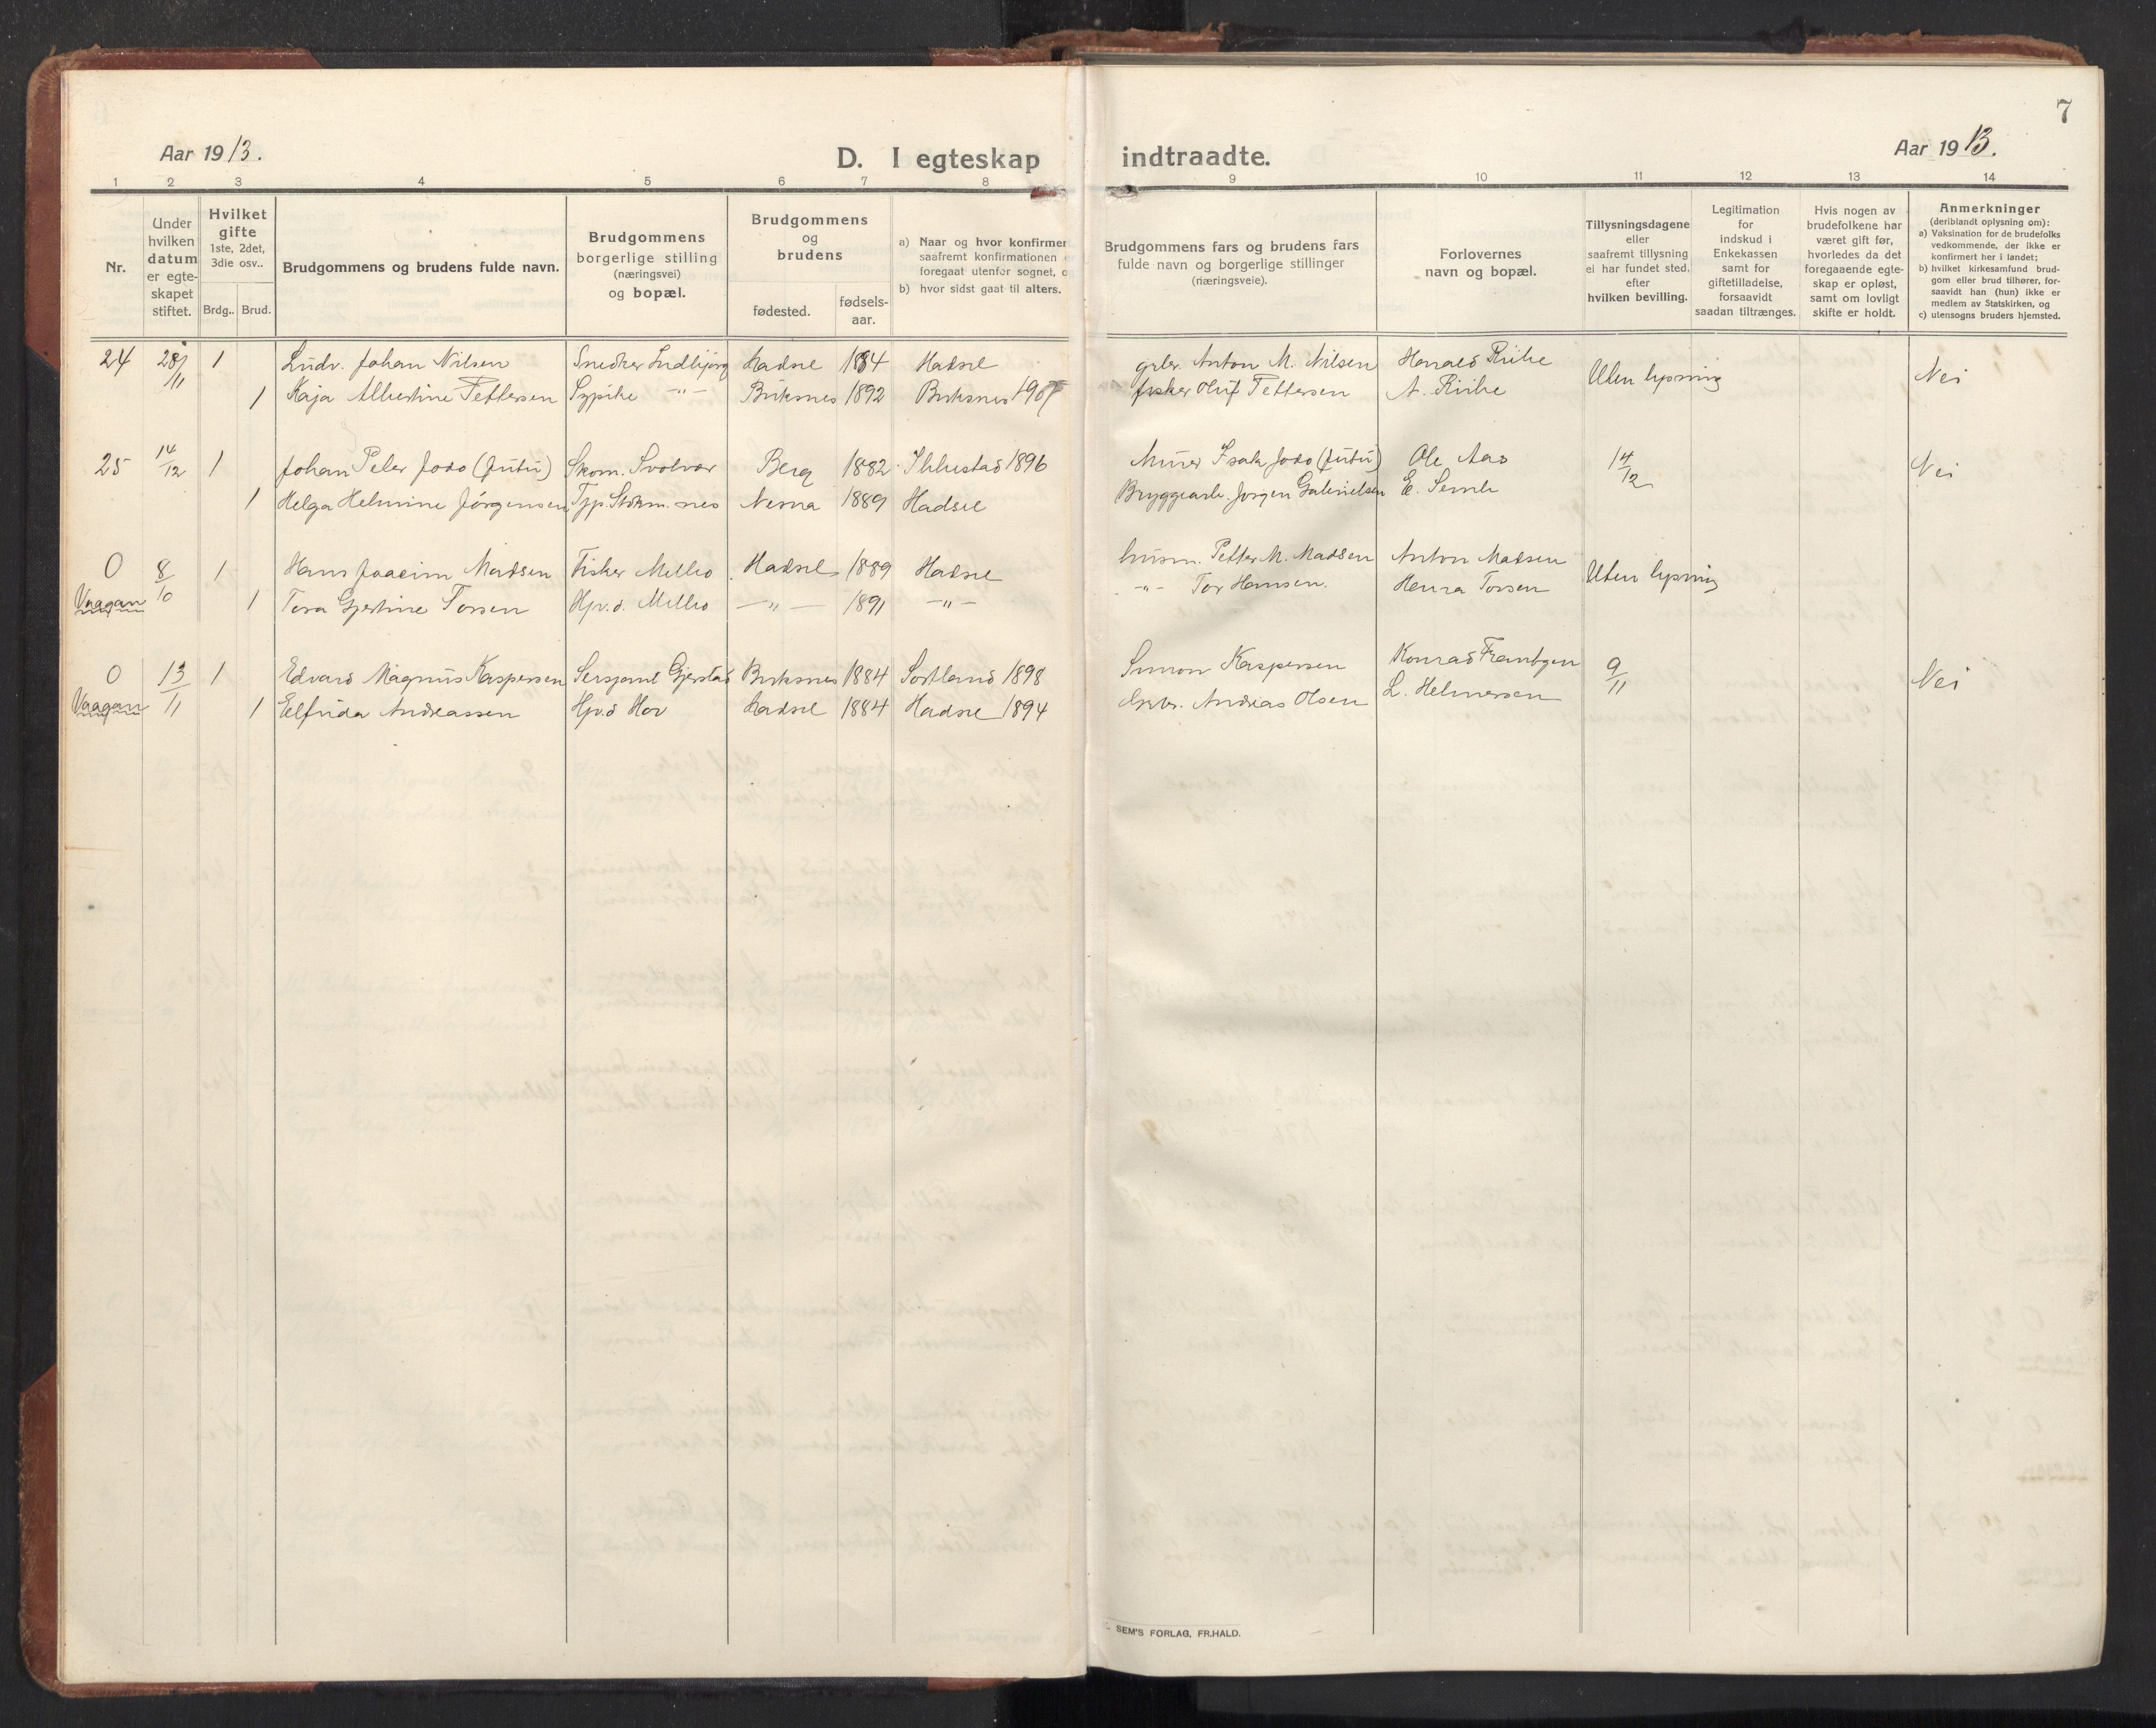 7
Aar 1913.
D. I egteskap indtraadte.
Aar 1913.
1 2 3 4 5 6 7 8 9 10 11 12 13 14
Nr.
Under hvilken datum er egte-skapet stiftet.
Hvilket gifte 1ste, 2det, 3die osv..
Brdg.. Brud.
Brudgommens og brudens fulde navn.
Brudgommens borgerlige stilling (næringsvei) og bopæl.
Brudgommens og brudens
fødested. fødsels-aar.
a) Naar og hvor konfirmer
saafremt konfirmationen
foregaat utenfor sognet,
b) hvor sidst gaat til alters.
Brudgommens fars og brudens fars
fulde navn og borgerlige stillinger
(næringsveie).
Forlovernes
navn og bopæl.
Tillysningsdagene
eller
saafremt tillysning
ei har fundet sted,
efter
hvilken bevilling.
Legitimation
for
indskud i
Enkekassen
samt for
giftetilladelse,
forsaavidt
saadan tiltrænges.
Hvis nogen av
brudefolkene har
været gift før,
hvorledes da det
foregaaende egte-
skap er opløst,
samt om lovligt
skifte er holdt.
Anmerkninger
(deriblandt oplysning om):
a) Vaksination for de brudefolks
vedkommende, der ikke er
konfirmert her i landet;
b) hvilket kirkesamfund brud-
gom eller brud tilhører, for-
saavidt han (hun) ikke er
medlem av Statskirken, og
c) utensogns bruders hjemsted.
24 28/11 1 Ludv. Johan Nilsen Snedker Hadsel 1884 Hadsel Anton M. Nilsen Harald Riibe Uten lysning Nei
1 Kaja Albertine Pettersen Sypike -"- Buksnes 1892 Buksnes 1907 fisker Oluf Pettersen A. Riibe
25 14/12 1 Johan Peter Jodo (Jutu) Skom. Svolvær Berg 1882 1896 Murer Isak Jodo (Jutu) Ole Aas 14/12 Nei
1 Helga Helmine Jørgensen Stokm.nes Nesna 1889 Hadsel Bryggearb. Jørgen Gabrielsen E.
0 8/10 1 Hans Joacim Madsen Fisker Melbo Hadsel 1889 Hadsel husm. Petter M. Madsen Anton Madsen Uten lysning
Vaagan 1 Tora Gjertine Torsen Hjv.d. Melbo -"- 1891 -"- -"- Tor Hansen. Torsen
0 13/11 1 Edvard Magnus Kaspersen Sersjant Gjerstad Buksnes 1884 Sortland 1898 Simon Kaspersen Konrad 9/11 Nei
Vaagan 1 Elfrida Andreassen Hjv.d Hov Hadsel 1884 Hadsel 1894 Andreas Olsen L. Helmersen
SEM'S FORLAG, FR.HALD.